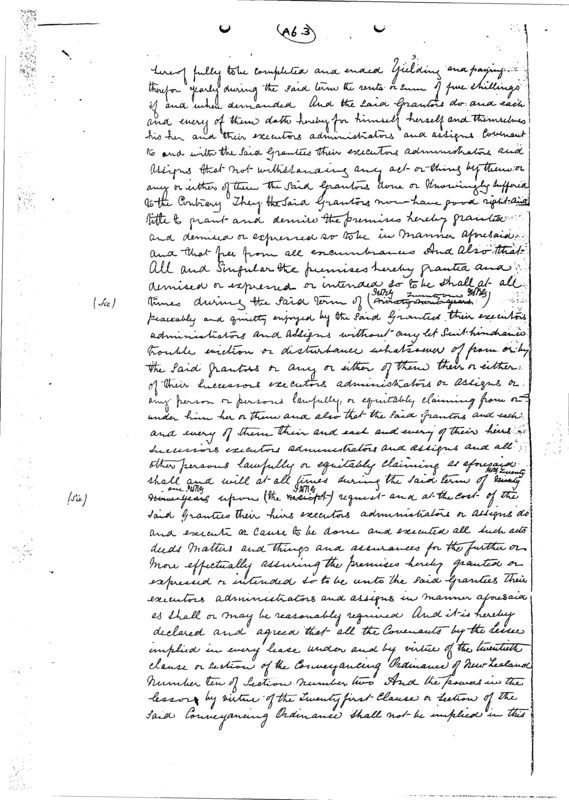 A6.3
hereof fully to be completed and ended Yielding and paying
therefor yearly during the said term the rents or sum of five shillings
if and when demanded And the said Grantors do and each
and every of them doth hereby for himself herself and themselves
his her and their executors administrators and assigns Covenant
to and with the said Grantees their executors administrators and
Assigns that not withstanding any act or thing by them or
any or either of them the said Grantors done or Knowingly suffered
to the Contrary They the said Grantors now have good right and
title to grant and demise the premises hereby granted
and demised or expressed so to be in manner aforesaid
and that free from all encumbrances And Also that
All and Singular the premises hereby granted and
demised or expressed or intended so to be shall at all
(Sic) times during the said term of
peaceably and quietly enjoyed by the said Grantees, their executors
administrators and Assigns without any let Suit hindrance
trouble eviction or disturbance whatsoever of from or by
the said Grantors or any or either of them their or either
of their Successors executors administrators or assigns or
any person or persons lawfully or equitably claiming from or
under him her or them and also that the said Grantors and each
and every of them their and each and every of their heirs
Successors executors administrators and assigns and all
other persons lawfully or equitably claiming as aforesaid
shall and will at all times during the said term of
(Sic) upon (the receipt) request and at the cost of the
said Grantees their heirs executors administrators or assigns do
and execute or cause to be done and executed all such acts
deeds matters and things and assurances for the further or
more effectually assuring the premises hereby granted or
expressed or intended so to be unto the said Grantees their
executors administrators and assigns in manner aforesaid
as shall or may be reasonably required And it is hereby
declared and agreed that all the Covenants by the lessee
implied in every lease under and by virtue of the twentieth
clause or section of the Conveyancing Ordinance of New Zealand
Number ten of Section number two And the powers in the
lessors by virtue of the Twenty first Clause or Section of the
said Conveyancing Ordinance shall not be implied in this